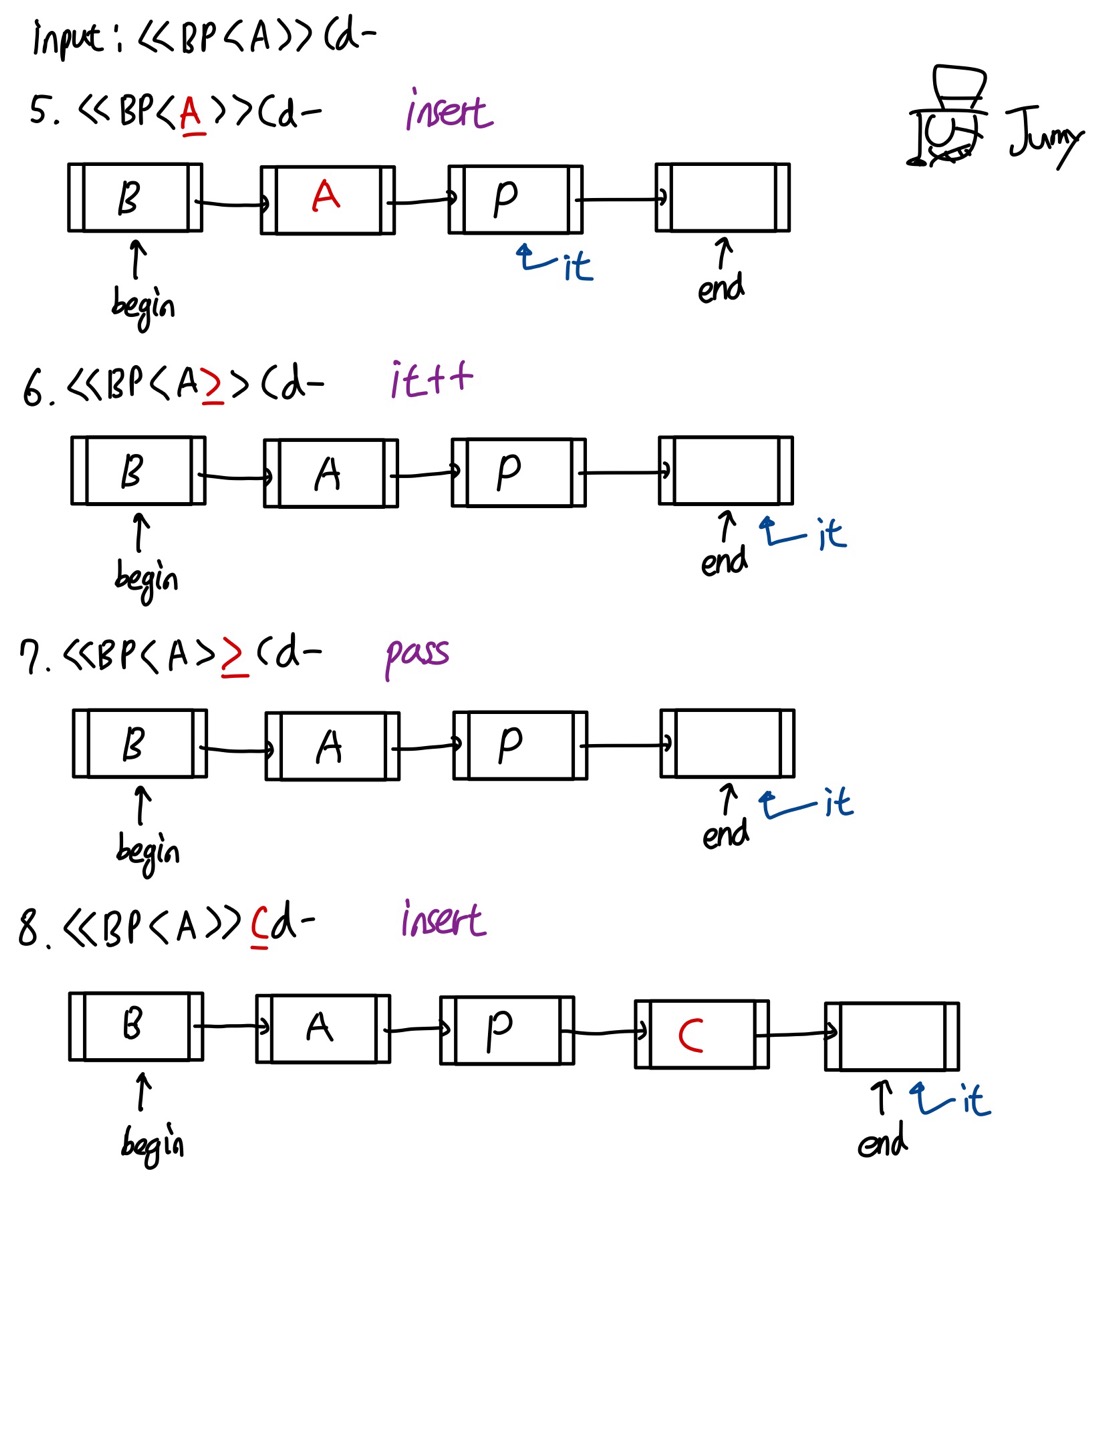 input: <<BP<A>>Cd-
Jumy
5. <<BP<A>>Cd- insert
B A P
it
begin end
6. <<BP<A>>Cd- it++
B A P
begin end it
7. <<BP<A>>Cd- pass
B A P
begin end it
8. <<BP<A>>Cd- insert
B A P C
begin end it